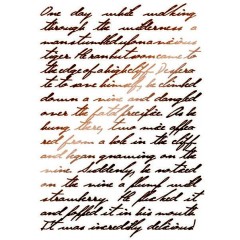 One day while walking
through the wilderness a
man stumbled upon a vicious
tiger. He ran but soon came to
the edge of a high cliff. Despera
te to save himself, he climbed
down a vine and dangled
over the fatal precipice. As he
hung there, two mice appea
red from a hole in the cliff
and began gnawing on the
vine. Suddenly, he noticed
on the vine a plump wild
strawberry. He plucked it
and popped it in his mouth.
It was incredibly delicious